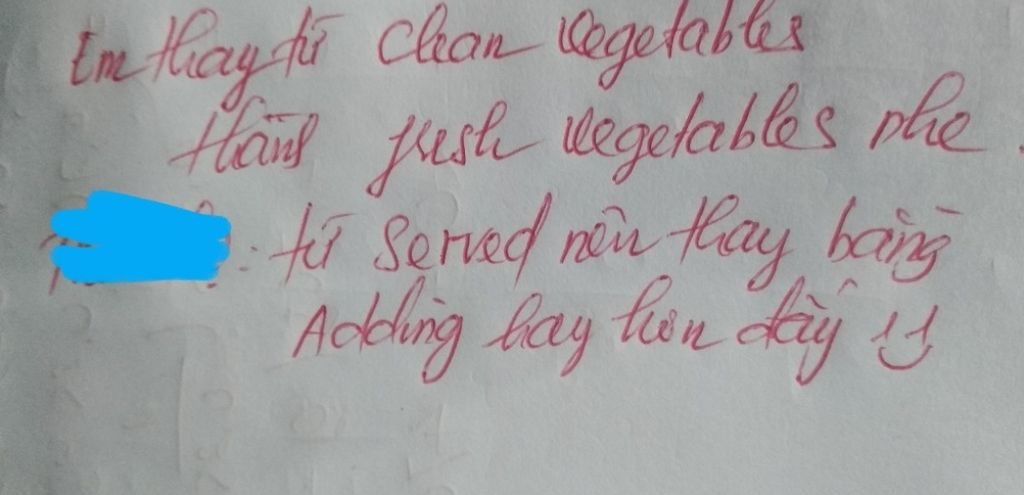 Em thay từ Clean vegetables
thành fresh vegetables nhe.
: từ Served nên thay bằng
Adding hay hơn đấy